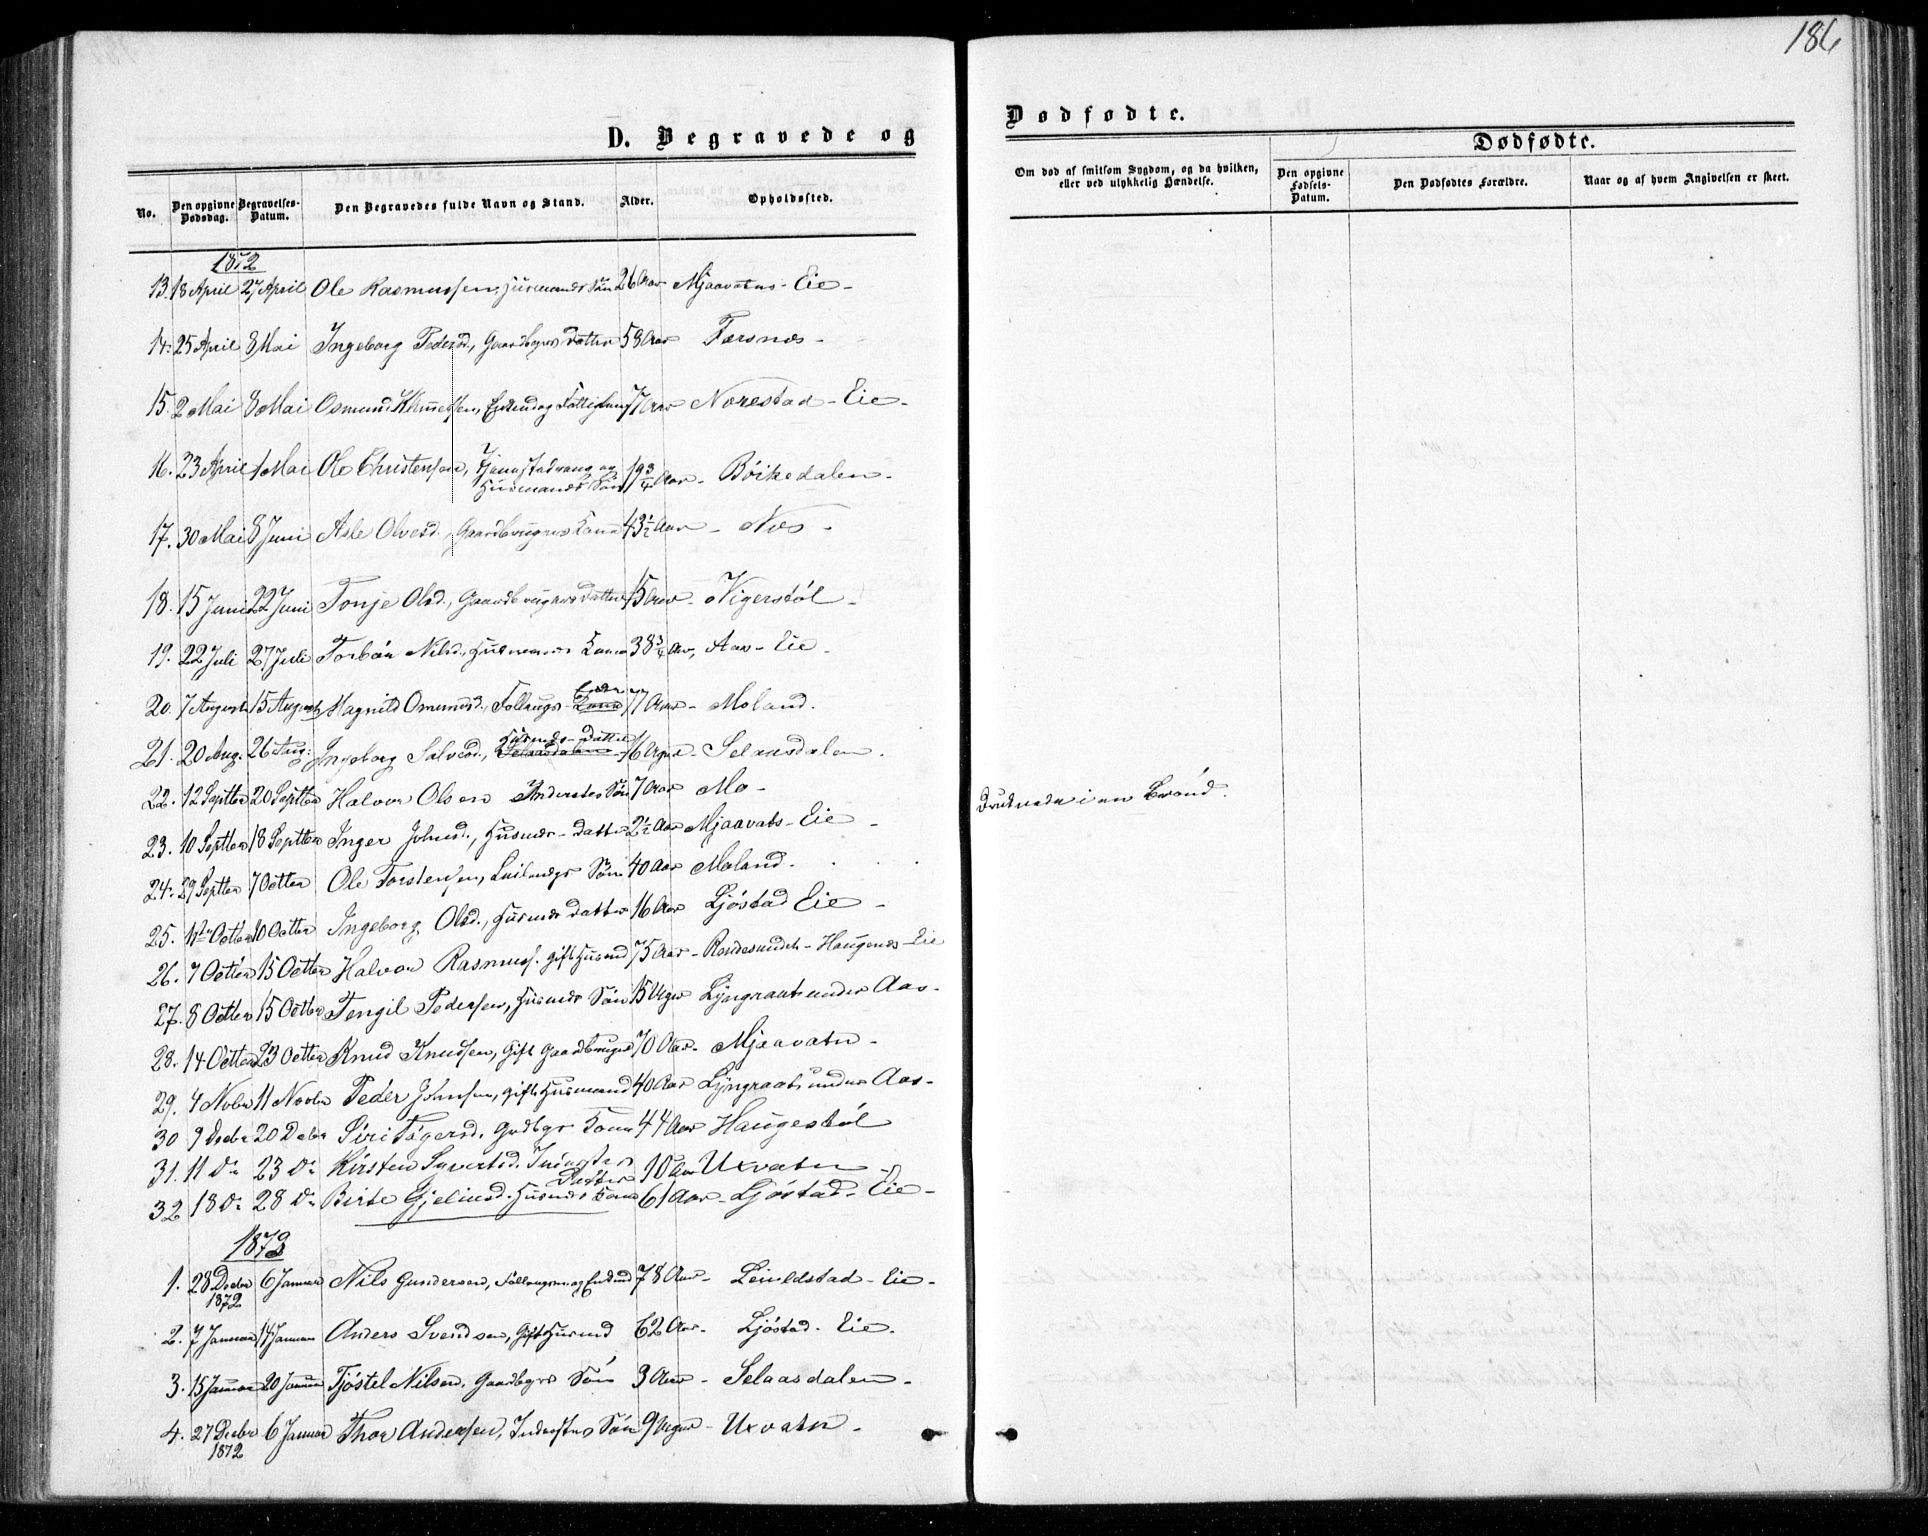 186
D. Begravede og
Dødfødte.
No.
Den opgivne Dødsdag.
Begravelses-Datum.
Den Begravedes fulde Navn og Stand.
Alder.
Opholdssted.
Om død af smitsom Sygdom, og da hvilken, eller ved ulykkelig Hændelse.
Dødfødte.
Den opgivne Fødsels-Datum.
Den Dødfødtes Forældre.
Naar og af hvem Angivelsen er skeet.
1872
13. 18 April 27 April Ole Rasmussen, Husmands Søn 26 Aar Mjaavatns-Eie-
14. 25 April 8 Mai Ingeborg Pedersd., Gaardbgrs Datter 58 Aar Færsnæs-
15. 2 Mai 8 Mai Osmund 77 Aar Norestad-Eie-
16. 23 April 1 Mai Ole Christensen, og Husmands Søn 19 3/4 Aar- Böikedalen-
17. 30 Mai 8 Juni Asle Olvesd., Gaardbrugers Kone 43 1/2 Aar- Næs-
18. 15 Juni 22 Juni Tonje Olsd., Gaardbrugers Datter 15 Aar- Vigerstöl-
19. 22 Juli 27 Juli Torbör Nilsd., Husmands Kone 38 3/4 Aar, Aas-Eie-
20. 7 August 15 August Magnild Osmunds., Follaugs- Enke 77 Aar- Moland.
21. 20 Aug. 26 Aug: Ingeborg Salvesd., Husmds-Datter 16 Uger- Selaasdalen
22. 12 Septber 20 Septber Halvor Olsen Indersts Søn 7 Aar Mo- Druknede i en Brönd.
23. 10 Septber 18 Septber Inger Johnsd., Husmds-Datter 2 1/2 Aar Mjaavats-Eie-
24. 29 Septber 7 Octber Ole Torstensen, Søn 40 Aar Moland.
25. 1ste Octber 10 Octber Ingeborg Olsd., Husmds Datter 16 Aar Ljöstad Eie-
26. 7 Octber 15 Octber Halvor Rasmuss. gift Husmd 75 Aar- Haugenes-Eie
27. 8 Octber 15 Octber Tengil Pedersen, Husmds Søn 15 Uger Lyngraatt under Aas-
28. 14 Octber 23 Octber Knud Knudsen, Gift Gaardbruger 70 Aar- Mjaavatn-
29. 4 Novbr 11 Novbr Peder Johnsen, gift Husmand 40 Aar Lyngraatt under Aas-
30 9 Decbr 20 Decbr Siri Tögersd. Grdbgr Kone 44 Aar Haugestöl
31. 11 Do 23 Do Kirsten Syvertsd. Indersts Datter 10 Aar Uxvatn-
32 18 Do 28 Do Birte Gjelmsd. Husmds Kone 61 Aar- Ljöstad-Eie-
1873
1. 28 Decbr 1872 6 Januar Nils Gundersen, 78 Aar- Leiuldstad-Eie-
2. 7 Januar 14 Januar Anders Svendsen, Gift Husmd 62 Aar- Ljöstad-Eie.
3. 15 Januar 20 Januar Tjöstel Nilsen. Gaardbgrs Søn 3 Aar- Selaasdalen-
4. 27 Decbr 1872 6 Januar Thor Andersen, Indersts Søn 9 Uger- Uxvatn-